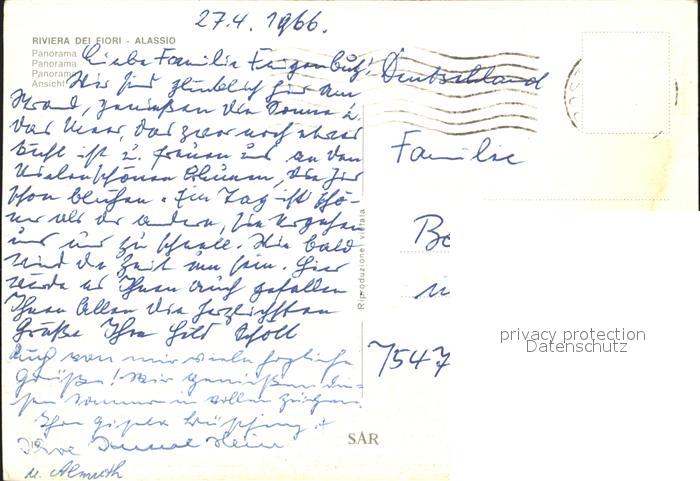 27.4.1966.
RIVIERA DEI FIORI - ALASSIO
Panorama
Panorama
Panorama
Ansicht
Liebe Familie
Wir sind glücklich hier am
Strand, genießen die Sonne u.
das Meer, das zwar noch etwas
kühl ist u. freuen uns an den
vielen schönen Blumen, die hier
schon blühen. Ein Tag ist schö-
ner als der andere, sie vergehen
uns nur zu schnell. Wie bald
wird die Zeit um sein. Hier
würde es Ihnen auch gefallen
Ihnen Allen die herzlichsten
Grüße Ihre Schöll
Auch von mir viele herzliche
Grüße! Wir genießen die-
sen Sommer in vollen Zügen.
Ihre Gisela
Ihre
u. Almuth
Deutschland
Familie
Bo
in
7547
Riproduzione vietata
SAR
privacy protection
Datenschutz